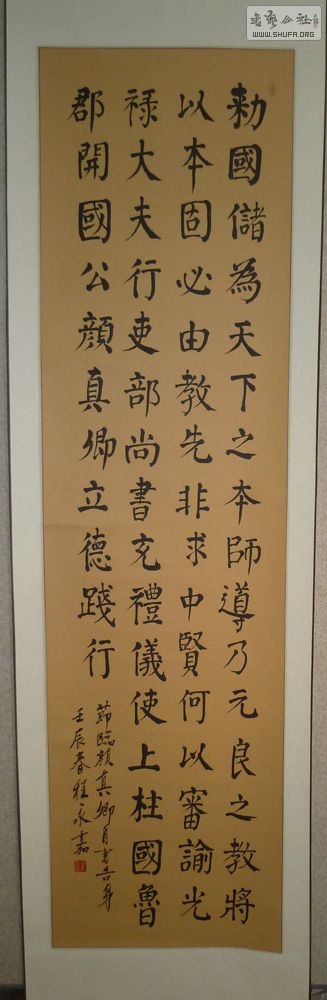 書藝公社
WWW.SHUFA.ORG
勑國儲為天下之本師導乃元良之教將
以本固必由教先非求中賢何以審諭光
祿大夫行吏部尚書充禮儀使上柱國魯
郡開國公顏真卿立德踐行
節臨顏真卿自書告身
壬辰春程永嘉